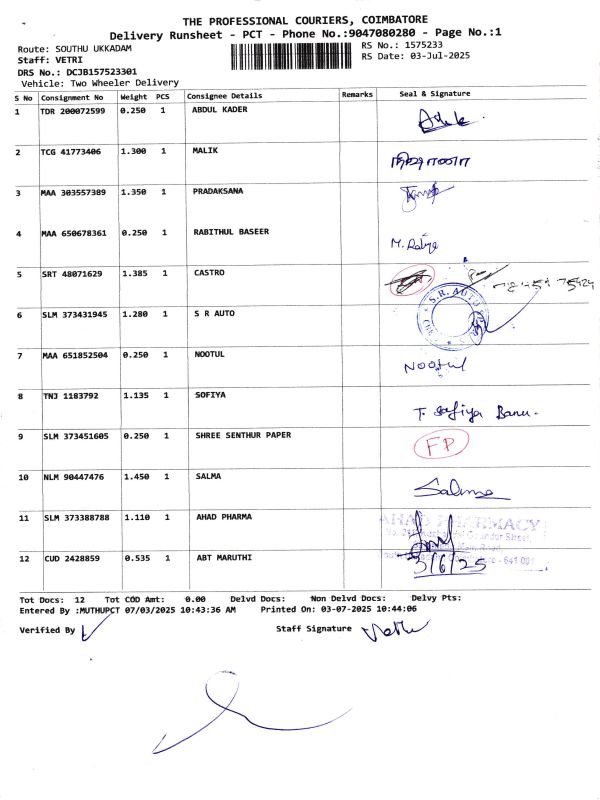 THE PROFESSIONAL COURIERS, COIMBATORE
Delivery Runsheet - PCT - Phone No.:9047080280 - Page No.:1
Route: SOUTHU UKKADAM RS No.: 1575233
Staff: VETRI RS Date: 03-Jul-2025
DRS No.: DCJB157523301
Vehicle: Two Wheeler Delivery
S No Consignment No Weight PCS Consignee Details Remarks Seal & Signature
1 TDR 200072599 0.250 1 ABDUL KADER
2 TCG 41773406 1.300 1 MALIK
3 MAA 303557389 1.350 1 PRADAKSANA
4 MAA 650678361 0.250 1 RABITHUL BASEER
5 SRT 48071629 1.385 1 CASTRO
6 SLM 373431945 1.280 1 S R AUTO S.R. AUTO
7 MAA 651852504 0.250 1 NOOTUL Nootul
8 TNJ 1183792 1.135 1 SOFIYA T. Safiya Banu.
9 SLM 373451605 0.250 1 SHREE SENTHUR PAPER FP
10 NLM 90447476 1.450 1 SALMA Salma
11 SLM 373388788 1.110 1 AHAD PHARMA AHAD PHARMACY
12 CUD 2428859 0.535 1 ABT MARUTHI 3/6/25
Tot Docs: 12 Tot COD Amt: 0.00 Delvd Docs: Non Delvd Docs: Delvy Pts:
Entered By :MUTHUPCT 07/03/2025 10:43:36 AM Printed On: 03-07-2025 10:44:06
Verified By Staff Signature